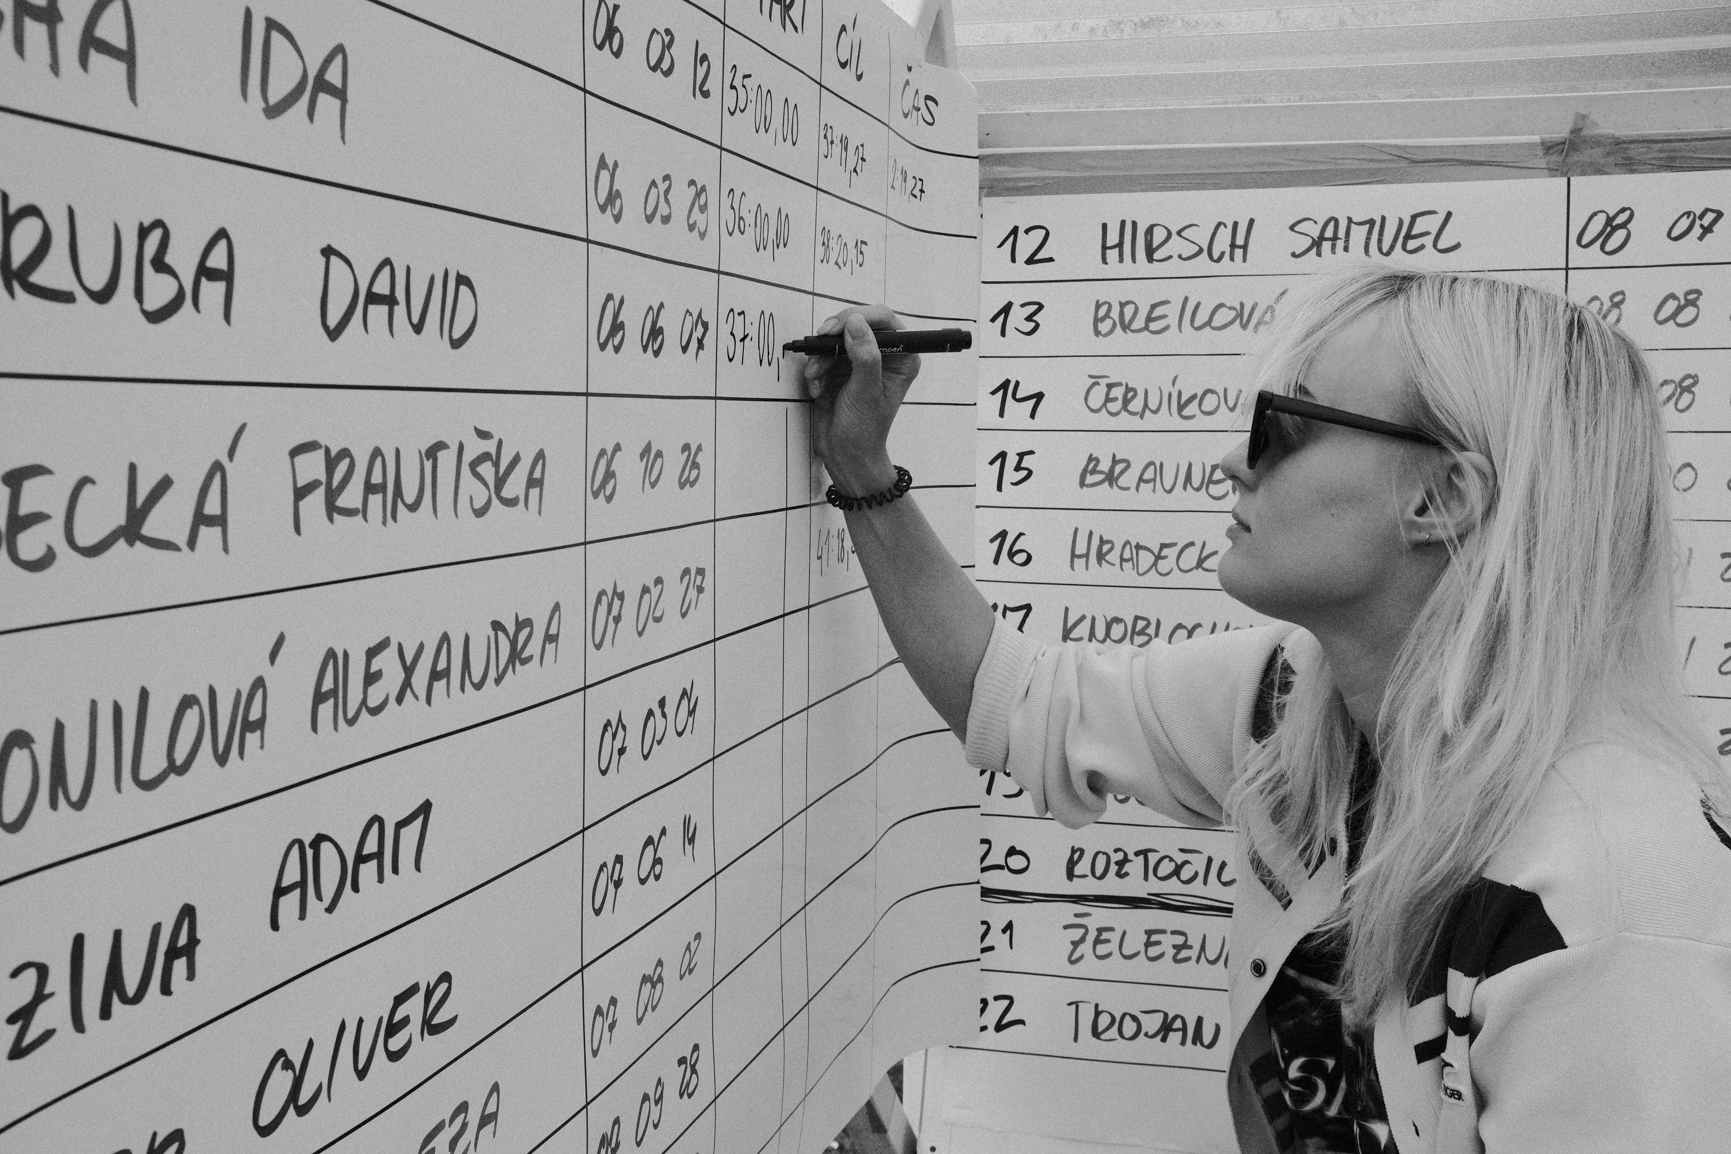 IDA 06 03 12 35:00,00 37:19,27 2:19,27
CÍL
ČAS
RUBA DAVID 06 03 29 36:00,00 38:20,15
06 06 07 37:00,
ECKÁ FRANTIŠKA 06 10 26
ONILOVÁ ALEXANDRA 07 02 27 41:18,
07 03 04
ZINA ADAM 07 06 14
OLIVER 07 08 02
EZA 07 09 28
12 HIRSCH SAMUEL 08 07
13 BREILOVÁ 08 08
14 ČERNÍKOV 08
15 BRAUNE
16 HRADECK
17 KNOBLOCH
19
20 ROZTOČIL
21 ŽELEZN
22 TROJAN